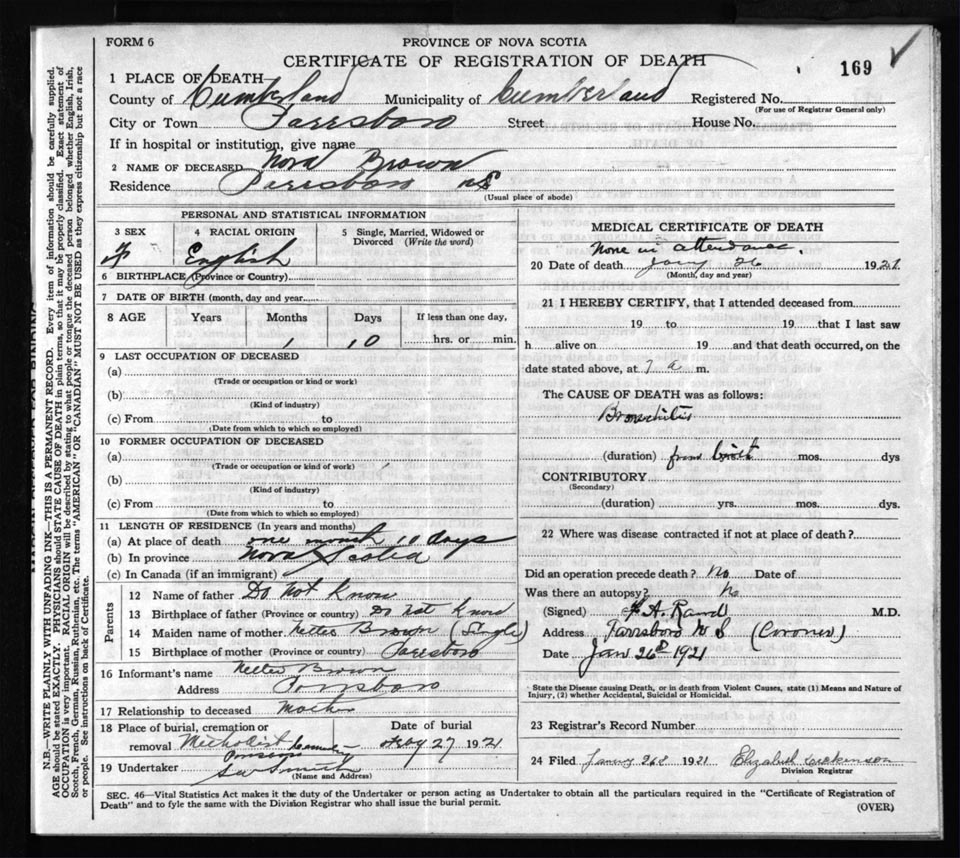 FORM 6
PROVINCE OF NOVA SCOTIA
CERTIFICATE OF REGISTRATION OF DEATH
169
1 PLACE OF DEATH
County of Cumberland Municipality of Cumberland Registered No.
(For use of Registrar General only)
City or Town Parrsboro Street House No.
If in hospital or institution, give name
2 NAME OF DECEASED Nora Brown
Residence Parrsboro NS
(Usual place of abode)
PERSONAL AND STATISTICAL INFORMATION
3 SEX 4 RACIAL ORIGIN 5 Single, Married, Widowed or Divorced (Write the word)
F English
6 BIRTHPLACE (Province or Country)
7 DATE OF BIRTH (month, day and year
8 AGE Years Months Days If less than one day,
1 10 hrs. or min.
9 LAST OCCUPATION OF DECEASED
(a)
(Trade or occupation or kind or work)
(b)
(Kind of industry)
(c) From to
(Date from which to which so employed)
10 FORMER OCCUPATION OF DECEASED
(a)
(Trade or occupation or kind of work)
(b)
(Kind of industry)
(c) From to
(Date from which to which so employed)
11 LENGTH OF RESIDENCE (In years and months)
(a) At place of death one month 10 days
(b) In province Nova Scotia
(c) In Canada (if an immigrant)
Parents
12 Name of father Do not Know
13 Birthplace of father (Province or country) Do not Know
14 Maiden name of mother Nettie Brown (Single)
15 Birthplace of mother (Province or country) Parrsboro
16 Informant's name Nettie Brown
Address Parrsboro
17 Relationship to deceased Mother
18 Place of burial, cremation or Date of burial
removal Methodist Cemetery 27 1921
19 Undertaker
(Name and Address)
MEDICAL CERTIFICATE OF DEATH
None in attendance
20 Date of death Jany 26 1921
(Month, day and year)
21 I HEREBY CERTIFY, that I attended deceased from
19 to 19 that I last saw
h alive on 19 and that death occurred, on the
date stated above, at 7 a m.
The CAUSE OF DEATH was as follows:
Bronchitis
(duration) from birth mos. dys
CONTRIBUTORY
(Secondary)
(duration) yrs. mos. dys.
22 Where was disease contracted if not at place of death?
Did an operation precede death? No Date of
Was there an autopsy? No
(Signed) A. Rand M.D.
Address Parrsboro N S (Coroner)
Date Jan 26 1921
State the Disease causing Death, or in death from Violent Causes, state (1) Means and Nature of
Injury, (2) whether Accidental, Suicidal or Homicidal.
23 Registrar's Record Number
24 Filed Janury 26 1921 Elizabeth Dickinson
Division Registrar
SEC. 46—Vital Statistics Act makes it the duty of the Undertaker or person acting as Undertaker to obtain all the particulars required in the "Certificate of Registration of
Death" and to fyle the same with the Division Registrar who shall issue the burial permit.
(OVER)
N.B.—WRITE PLAINLY WITH UNFADING INK—THIS IS A PERMANENT RECORD. Every item of information should be carefully supplied.
AGE should be stated EXACTLY. PHYSICIANS should STATE CAUSE OF DEATH in plain terms, so that it may be properly classified. Exact statement of
OCCUPATION is very important. RACIAL ORIGIN will be described by stating to what people or tongue the deceased person belonged whether English, Irish,
Scotch, French, German, Russian, Ruthenian, etc. The terms "AMERICAN" OR "CANADIAN" MUST NOT BE USED as they express citizenship but not a race
or people. See instructions on back of Certificate.